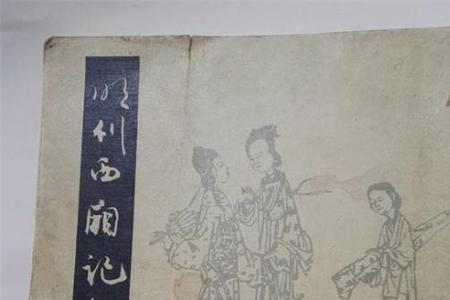 明刊西厢记